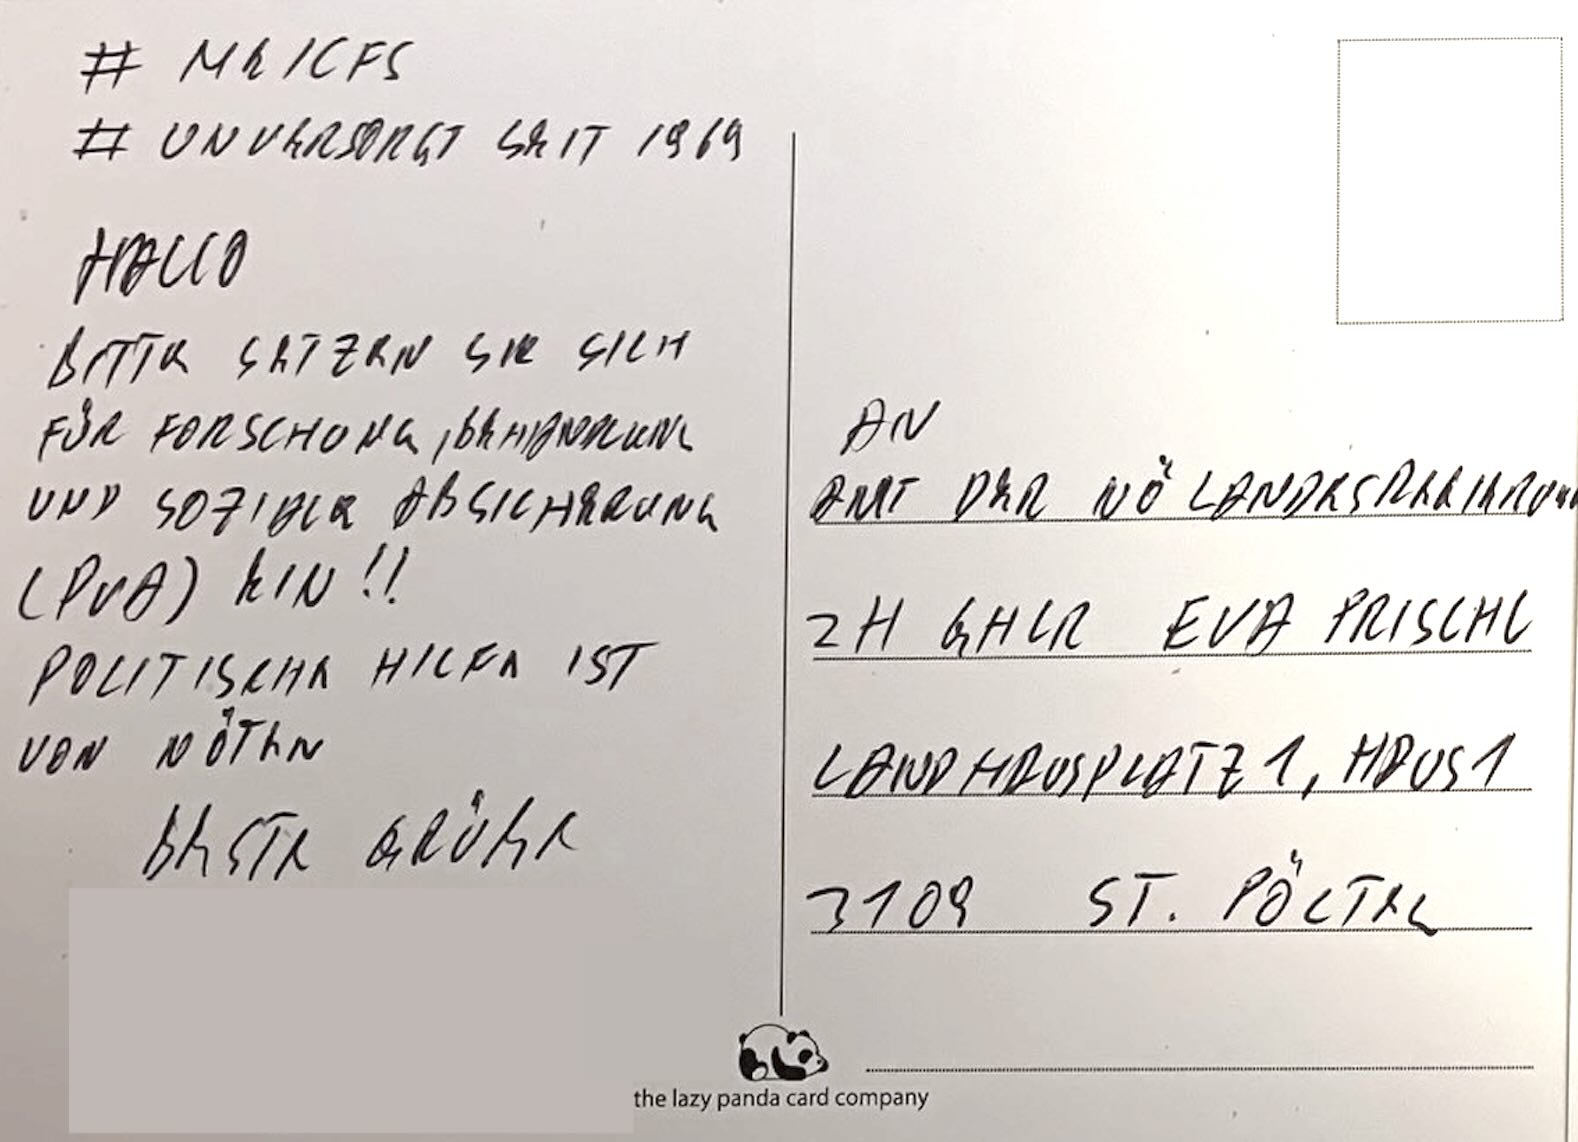 # ME/CFS
# UNVERSORGT SEIT 1969
HALLO
BITTE SETZEN SIE SICH
FÜR FORSCHUNG, BEHANDLUNG
UND SOZIALE ABSICHERUNG
(PVA) EIN!!
POLITISCHE HILFE IST
VON NÖTEN
BESTE GRÜßE
AN
AMT DER NÖ LANDESREGIERUNG
ZH EVA PRISCHL
LANDHAUSPLATZ 1, HAUS 1
3109 ST. PÖLTEN
the lazy panda card company